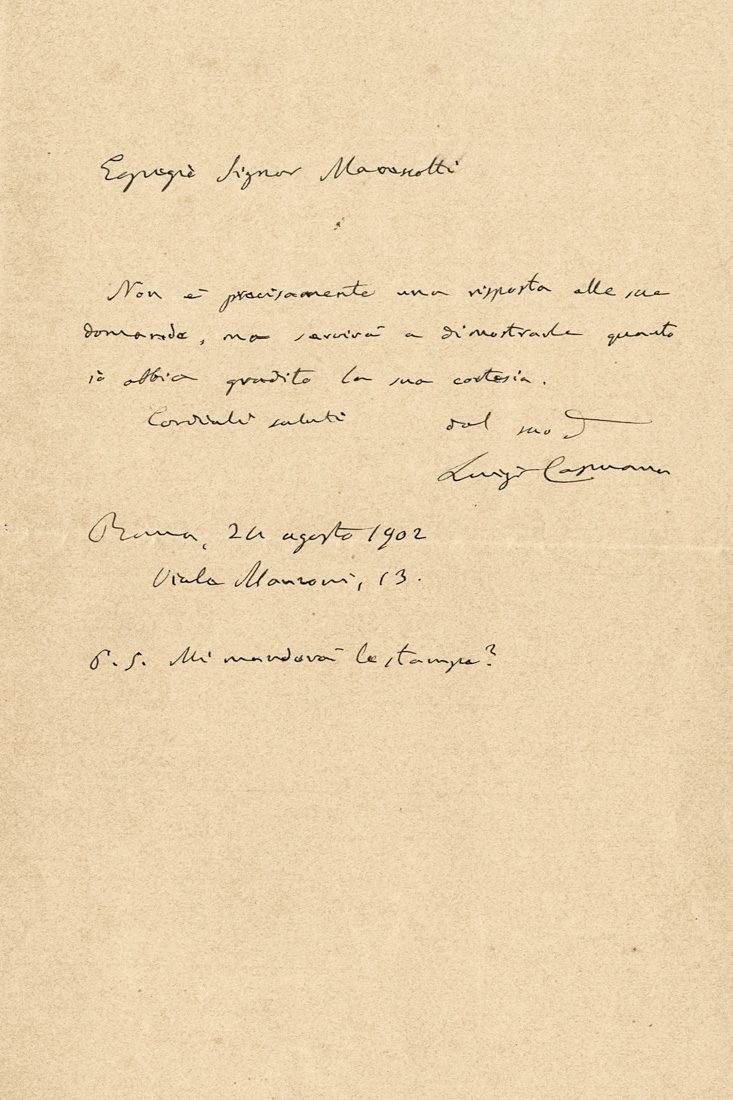 Egregio Signor Marescotti
Non è precisamente una risposta alle sue
domande, ma servirà a dimostrarle quanto
io abbia gradito la sua cortesia.
Cordiali saluti dal suo
Luigi Capuana
Roma, agosto 1902
Viale Manzoni, 13.
P. S. Mi manderà le stampe?